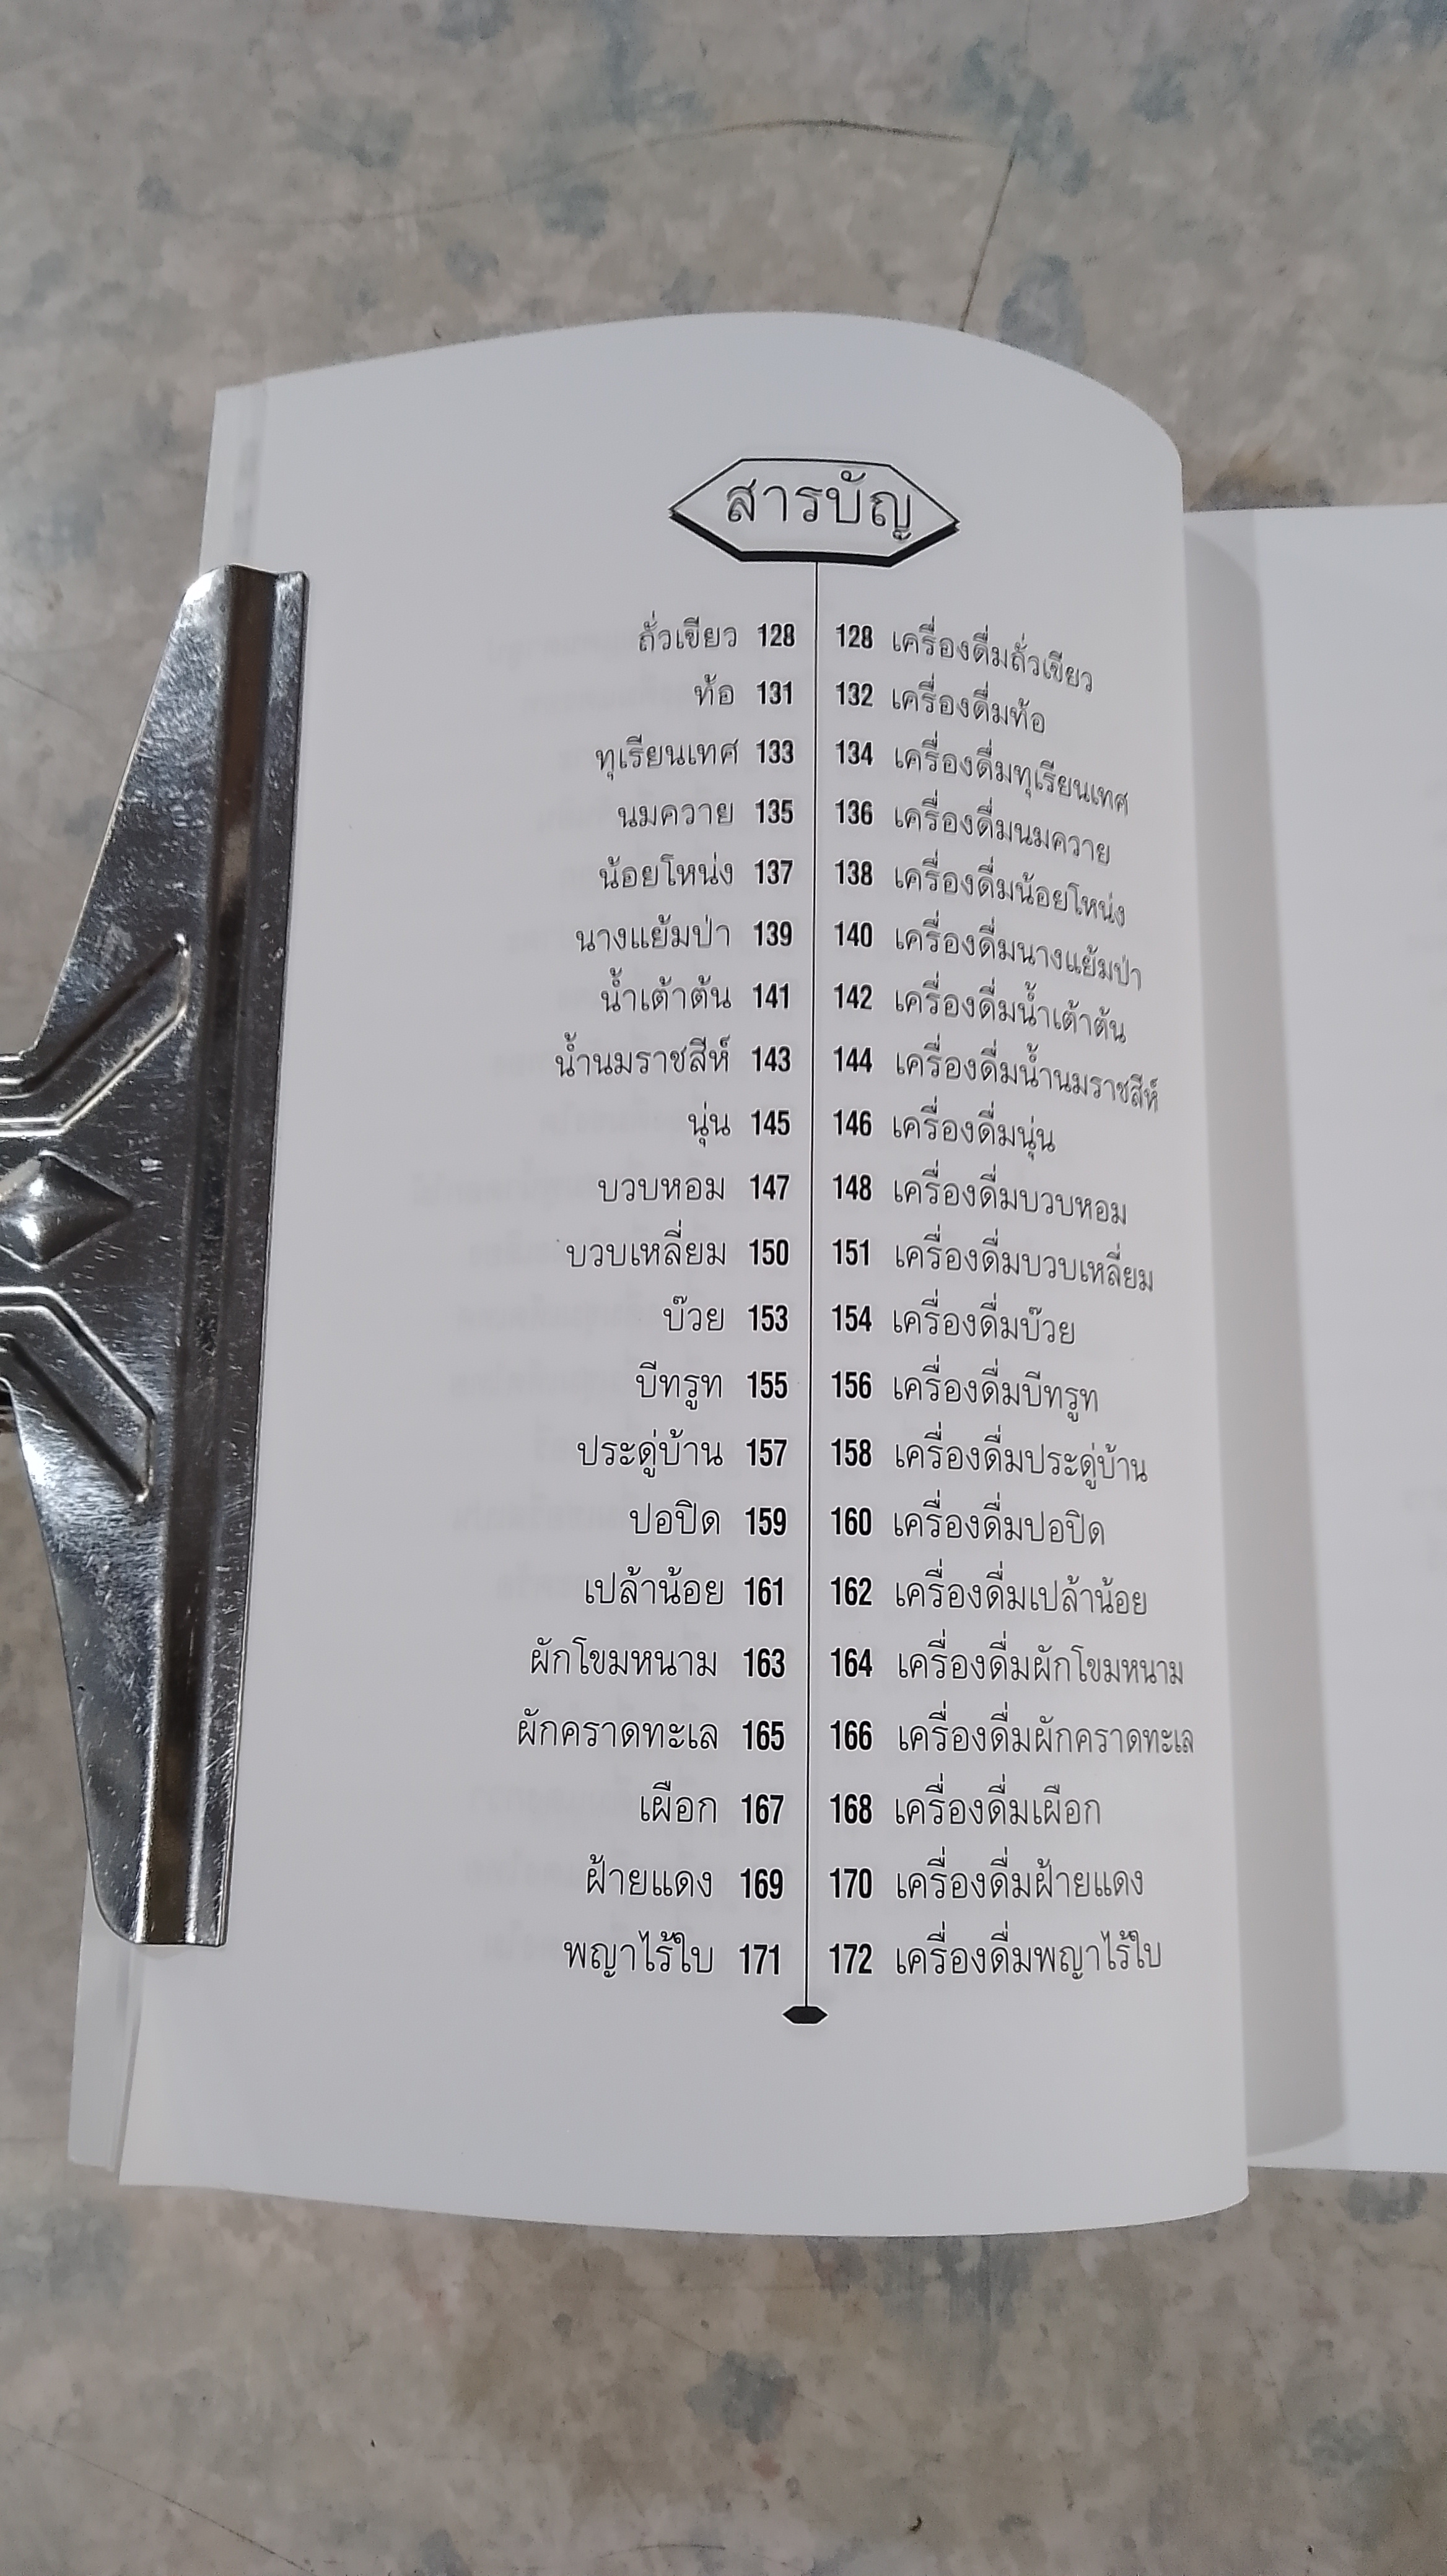 สารบัญ
ถั่วเขียว 128 128 เครื่องดื่มถั่วเขียว
ท้อ 131 132 เครื่องดื่มท้อ
ทุเรียนเทศ 133 134 เครื่องดื่มทุเรียนเทศ
นมควาย 135 136 เครื่องดื่มนมควาย
น้อยโหน่ง 137 138 เครื่องดื่มน้อยโหน่ง
นางแย้มป่า 139 140 เครื่องดื่มนางแย้มป่า
น้ำเต้าต้น 141 142 เครื่องดื่มน้ำเต้าต้น
น้ำนมราชสีห์ 143 144 เครื่องดื่มน้ำนมราชสีห์
นุ่น 145 146 เครื่องดื่มนุ่น
บวบหอม 147 148 เครื่องดื่มบวบหอม
บวบเหลี่ยม 150 151 เครื่องดื่มบวบเหลี่ยม
บ๊วย 153 154 เครื่องดื่มบ๊วย
บีทรูท 155 156 เครื่องดื่มบีทรูท
ประดู่บ้าน 157 158 เครื่องดื่มประดู่บ้าน
ปอปิด 159 160 เครื่องดื่มปอปิด
เปล้าน้อย 161 162 เครื่องดื่มเปล้าน้อย
ผักโขมหนาม 163 164 เครื่องดื่มผักโขมหนาม
ผักคราดทะเล 165 166 เครื่องดื่มผักคราดทะเล
เผือก 167 168 เครื่องดื่มเผือก
ฝ้ายแดง 169 170 เครื่องดื่มฝ้ายแดง
พญาไร้ใบ 171 172 เครื่องดื่มพญาไร้ใบ